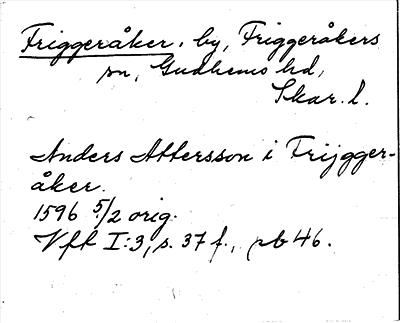 Friggeråker, by, Friggeråkers
sn, Gudhems hd,
Skar. l.
Anders Attersson i Frijgger-
åker.
1596 5/2 orig.
Vft I:3, s. 37 f., pb 46.